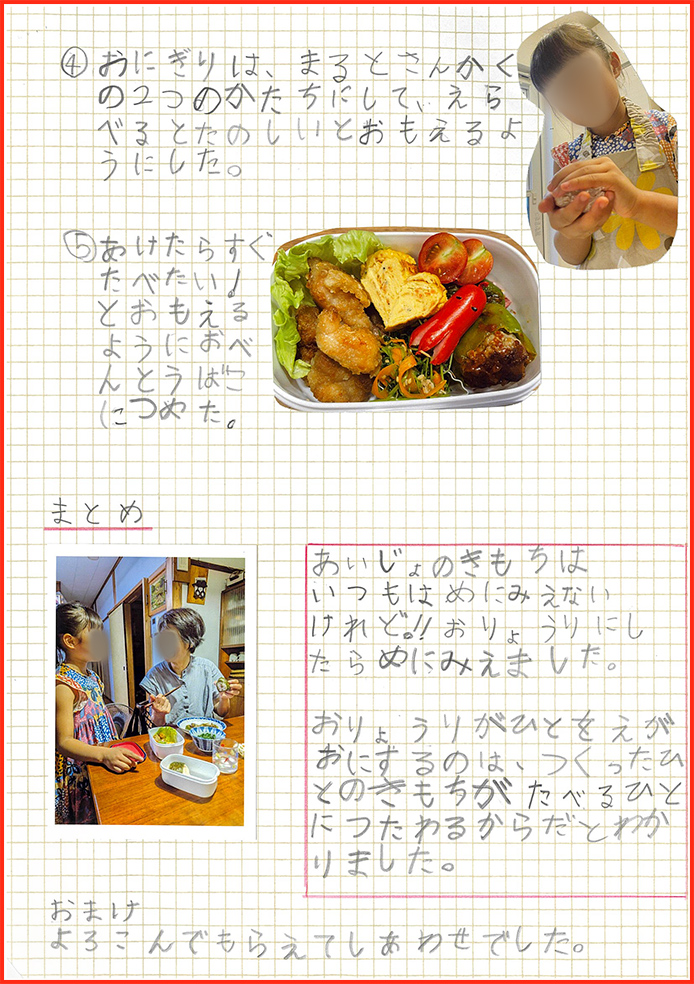 ④ おにぎりは、まるとさんかく
の2つのかたちにして、えら
べるとたのしいとおもえるよ
うにした。
⑤ あけたらすぐ
たべたい！
とおもえる
ようにおべ
んとうばこ
につめた。
まとめ
あいじょのきもちは
いつもはめにみえない
けれど。!! おりょうりにし
たらめにみえました。
おりょうりがひとをえが
おにするのは、つくったひ
とのきもちがたべるひと
につたわるからだとわか
りました。
おまけ
よろこんでもらえてしあわせでした。